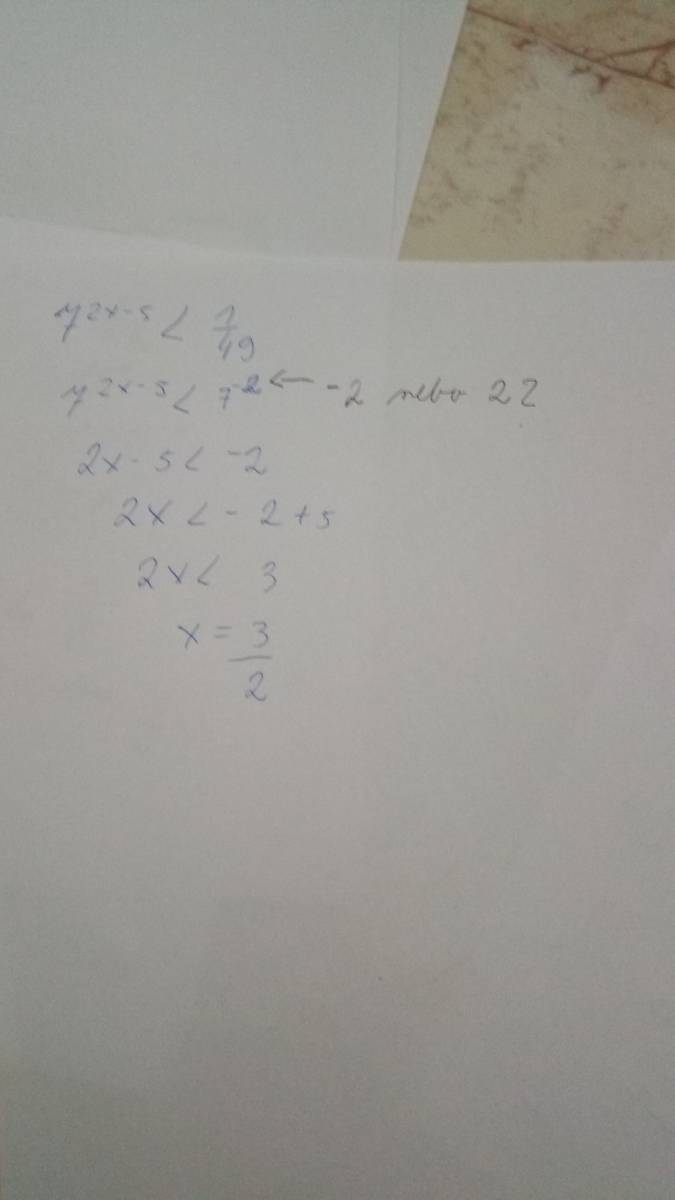 7^{2x-5} < \frac{1}{49}
7^{2x-5} < 7^{-2} ← -2 nebo 2?
2x - 5 < -2
2x < -2 + 5
2x < 3
x = \frac{3}{2}